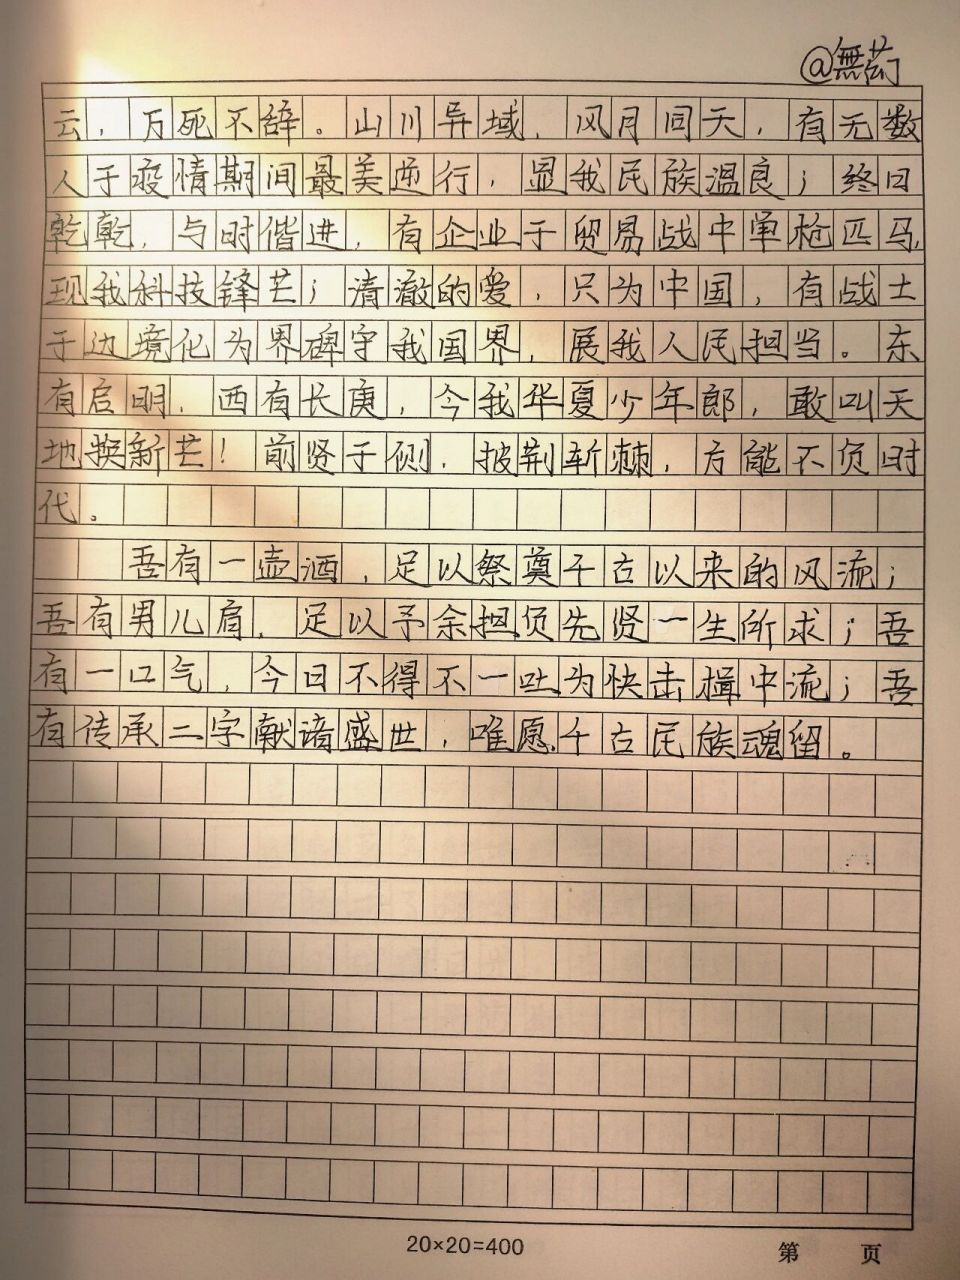 @無药
云，万死不辞。山川异域，风月同天，有无数
人于疫情期间最美逆行，显我民族温良；终日
乾乾，与时偕进，有企业于贸易战中单枪匹马，
现我科技锋芒；清澈的爱，只为中国，有战士
于边境化为界碑守我国界，展我人民担当。东
有启明，西有长庚，今我华夏少年郎，敢叫天
地换新芒！前贤于侧，披荆斩棘，方能不负时
代。
吾有一壶酒，足以祭奠千古以来的风流；
吾有男儿肩，足以予余担负先贤一生所求；吾
有一口气，今日不得不一吐为快击楫中流；吾
有传承二字献谙盛世，唯愿千古民族魂留。
20×20=400
第 页